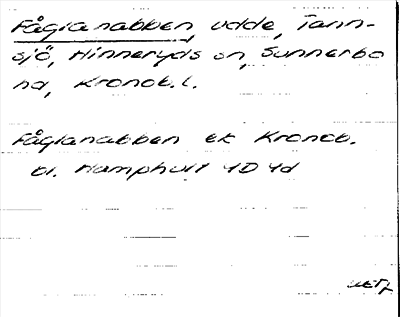 Fåglanabben, udde, Tann-
sjö, Hinneryds sn, Sunnerbo
hd, Kronob. l.
Fåglanabben ek Kronob.
bl. Hamphult 4D 4d